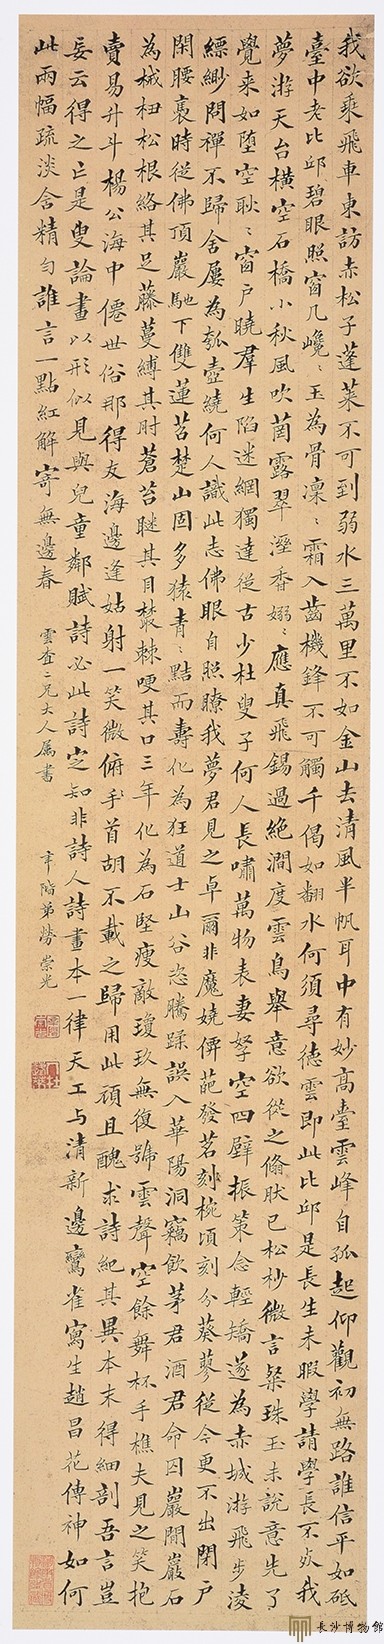 我欲乘飛車東訪赤松子蓬萊不可到弱水三萬里不如金山去清風半帆耳中有妙高臺雲峰自孤起仰觀初無路誰信平如砥
臺中老比邱碧眼照窗几巉〻玉為骨凜〻霜入齒機鋒不可觸千偈如翻水何須尋德雲即此比邱是長生未暇學請學長不死我
夢游天台橫空石橋小秋風吹菌露翠溼香嫋〻應真飛錫過絕澗度雲鳥舉意欲從之翛肰已松杪微言粲珠玉未說意先了
覺来如墮空耿〻窗戶曉羣生陷迷網獨達從古少杜叟子何人長嘯萬物表妻孥空四壁振策念輕矯遂為赤城游飛步凌
縹緲問禪不歸舍屢為瓠壺繞何人識此志佛眼自照瞭我夢君見之卓爾非魔嬈僲葩發茗刻椀頃刻分葵蓼從今更不出閉戶
閑腰褭時從佛頂巖馳下雙蓮苕楚山固多猿青〻黠而壽化為狂道士山谷恣騰蹂誤入華陽洞竊飲茅君酒君命囚巖間巖石
為械杻松根絡其足藤蔓縛其肘蒼苔瞇其目叢棘哽其口三年化為石堅瘦敵瓊玖無復號雲聲空餘舞杯手樵夫見之笑抱
賣易升斗楊公海中僊世俗那得友海邊逢姑射一笑微俯手首胡不載之歸用此頑且醜求詩紀其異本末得細剖吾言豈
妄云得之亡是叟論畫以形似見與兒童鄰賦詩必此詩定知非詩人詩畫本一律天工与清新邊鸞雀寫生趙昌花傳神如何
此兩幅疏淡含精勻誰言一點紅解寄無邊春
雲查二兄大人属書
辛階弟勞崇光
長沙博物館